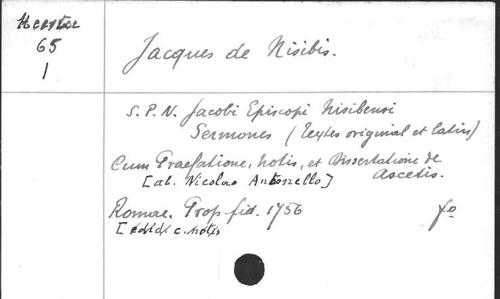 65
1
Jacques de Nisibis.
S. P. N. Jacobi Episcopi Nisibensi
Sermones (Textes original et latin)
Cum Praefatione, notis, et Dissertatione de
Ascetis.
[ab. Nicolao Antonello]
Romae. Prop. fid. 1756 fo
[ c. notis